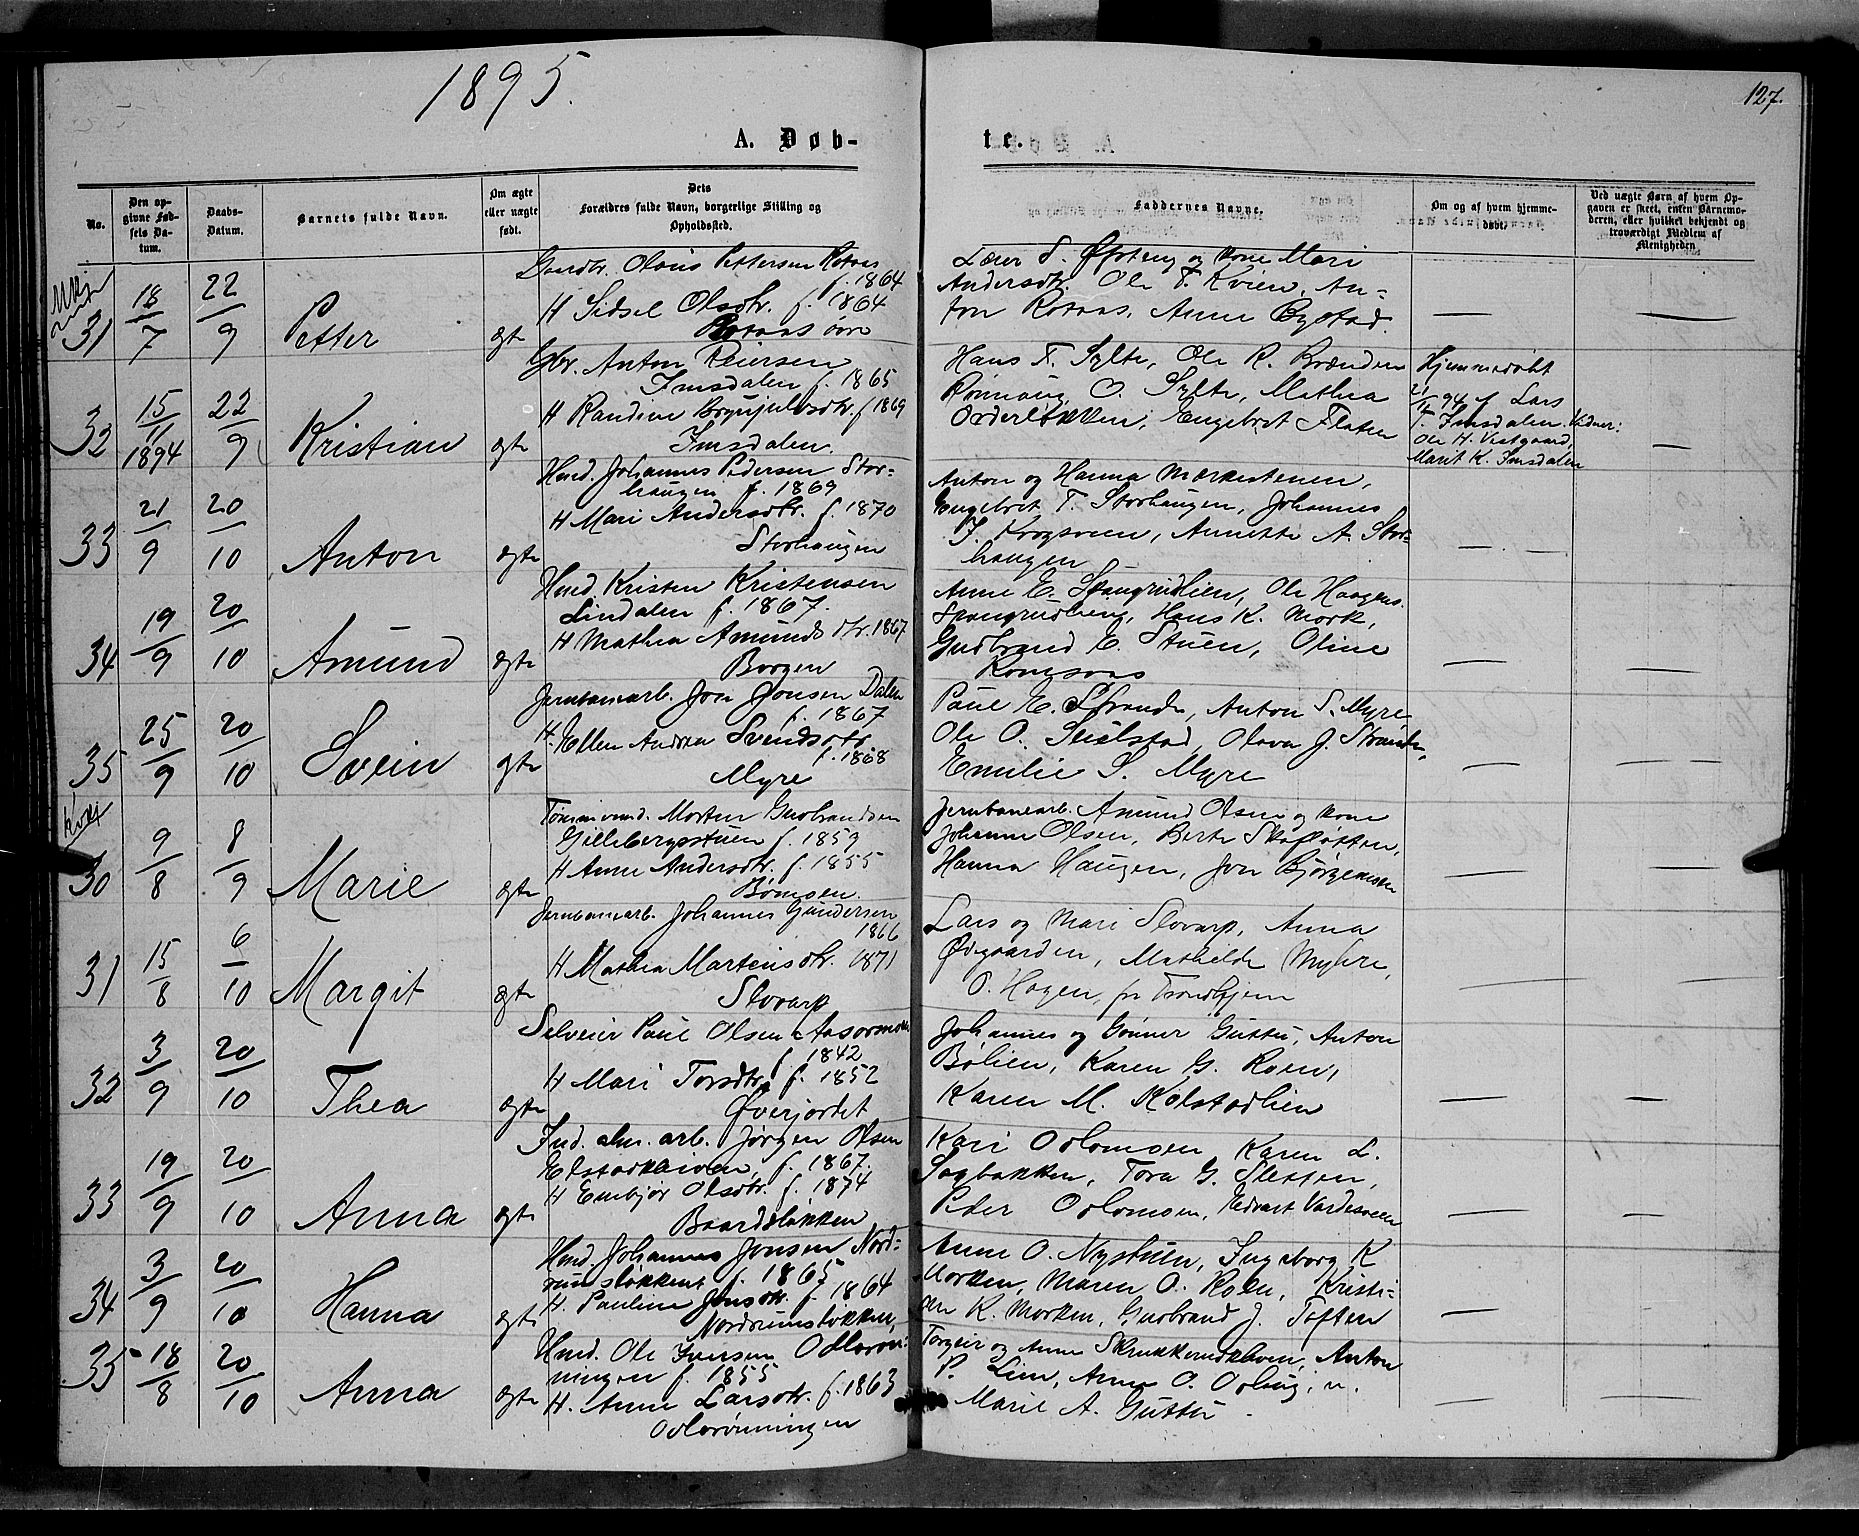 1895.
127.
A. Døb-
te.
No.
Den op-
givne Fød-
sels Da-
tum.
Daabs-
Datum.
Barnets fulde Navn.
Om ægte
eller uægte
født.
Dets
Forældres fulde Navn, borgerlige Stilling og
Opholdssted.
Faddernes Navne.
Om og af hvem hjemme-
døbt.
Ved uægte Børn af hvem Op-
gaven er skeet, enten Barnemo-
deren, eller hvilket bekjendt og
troværdigt Medlem af
Menigheden
31
18/7
22/9
Petter
ægte
Gaardbr. Olaus Pettersen Rotaas
f. 1864
H Sidsel Olsdtr. f. 1864
Rotaas øvre
Lærer S. Øfsteng og kone Mari
Andersdtr. Ole T. Kvien, An-
ton Rotaas, Anne Bystad.
—
32
15/11
1894
22/9
Kristian
ægte
Gbr. Anton Peiersen
Imsdalen f. 1865
H Randine Brynjulvsdtr. f 1869
Imsdalen.
Hans F. Sylte, Ole R. Brænden
O. Sylte, Mathea
Orderløkken, Engebret Flaten
Hjemmedøbt
94 af Lars
T. Imsdalen. Vidner:
Ole H. Vestgaard,
Marit K. Imsdalen
—
33
21/9
20/10
Anton
ægte
Hmd. Johannes Pedersen Stor-
haugen f. 1869
H Mari Andersdtr. f. 1870
Storhaugen
Anton og Hanna Mærkestenen,
Engebret T. Storhaugen, Johannes
J. Krogsveen, Annette A. Stor-
haugen
—
34
19/9
20/10
Amund
ægte
Hmd. Kristen Kristensen
Lindalen f. 1867.
H Mathea Amundsdtr. 1867
Borgen
Anne E. Spangrudlien, Ole Haagens.
Spangrudlieng, Hans K. Mork,
Gudbrand E. Stuen, Oline
Romsaas
—
35
25/9
20/10
Svein
ægte
Jernbanearb. Jon Jonsen Dalen
f. 1867
H. Ellen Andrea Svendsdtr.
f. 1868
Myre
Paul E. Strande, Anton S. Myre
Ole O. Skielstad, Olava J. Strande,
Emilie S. Myre
—
Kvkj
30
9/8
8/9
Marie
ægte
Tømmermd. Morten Gudbrandsen
Gillebergsstuen f. 1859
H Anne Andersdtr. f. 1855
Bømoen.
Jernbanearb. Amund Olsen og kone
Johanne Olsen, Berte Skafløtten,
Hanna Haugen, Jon Bjørgemoen
—
31
15/8
6/10
Margit
ægte
Jernbanearb. Johannes Gundersen
1866
H Mathea Martensdtr. 1871
Slovarp
Lars og Mari Slovarp, Anna
Øvgaarden, Mathilde Myhre,
O. Hagen, fr Trondhjem
—
32
3/9
20/10
Thea
ægte
Selveier Paul Olsen Aasormoen
f 1842
H Mari Torsdtr. f. 1852
Øverjordet
Johannes og Gunner Guttu, Anton
Bølien, Karen G. Roen,
Karen M. Kolstadlien
—
33
19/9
20/10
Anna
ægte
Ind. alm. arb. Jørgen Olsen
Elstadkleiven, f. 1867.
H Embjør Olsdtr. f. 1874
Baardsløkken
Kari Odlomoen, Karen L.
Sagbakken, Tora G. Sletten,
Peder Odlomoen, Edvart Vardesveen
—
34
3/9
20/10
Hanna
ægte
Hmd. Johannes Jonsen Nord-
rumsløkken f. 1865
H. Pauline Jonsdtr. f 1864
Nordrumsløkken,
Anne O. Nystuen, Ingeborg K
Morken, Maren O. Roen, Kristi-
an K. Morken, Gudbrand J. Toften
—
35
18/8
20/10
Anna
ægte
Hmd. Ole Iversen Odlorøn-
ningen f. 1855
H. Anne Larsdtr. f. 1863
Odlorønningen
Torgeir og Anne Skrukkerudkleven, Anton
P. Lien, Anne O. Odling, n.
Marie A. Guttu
—